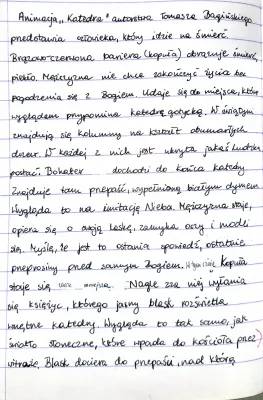 Animacja „Katedra" autorstwa Tomasza Bagińskiego
przedstawia człowieka, który idzie na śmierć
Brązowo czerwona bariera (kopuła) obrazuje śmierć,
piekło. Mężczyzna nie chce zakończyć życia bez
pogodzenia się z Bogiem. Udaje się do miejsca, które
wyglądem przypomina katedrę gotycką. W świątyni
znajdują się kolumny na kształt obumarłych
drzew. W każdej z nich jest ukryta jakaś ludzka
postać. Bohater dochodzi do końca katedry
Znajduje tam przepaść, wypełnioną białym dymem
Wygląda to na imitację Nieba. Mężczyzna staje,
opiera się o swoją laskę, zamyka oczy i modli
się. Myślę, że jest to ostatnia spowiedź, ostatnie
przeprosiny przed samym Bogiem. W tym czasie Kopuła
staje się coraz mniejsza. Nagle zza niej wyłania
się księżyc, którego jasny blask rozświetla
wnętrze katedry. Wygląda to tak samo, jak
światło słoneczne, które wpada do kościoła przez
witraże. Blask dociera do przepaści, nad którą